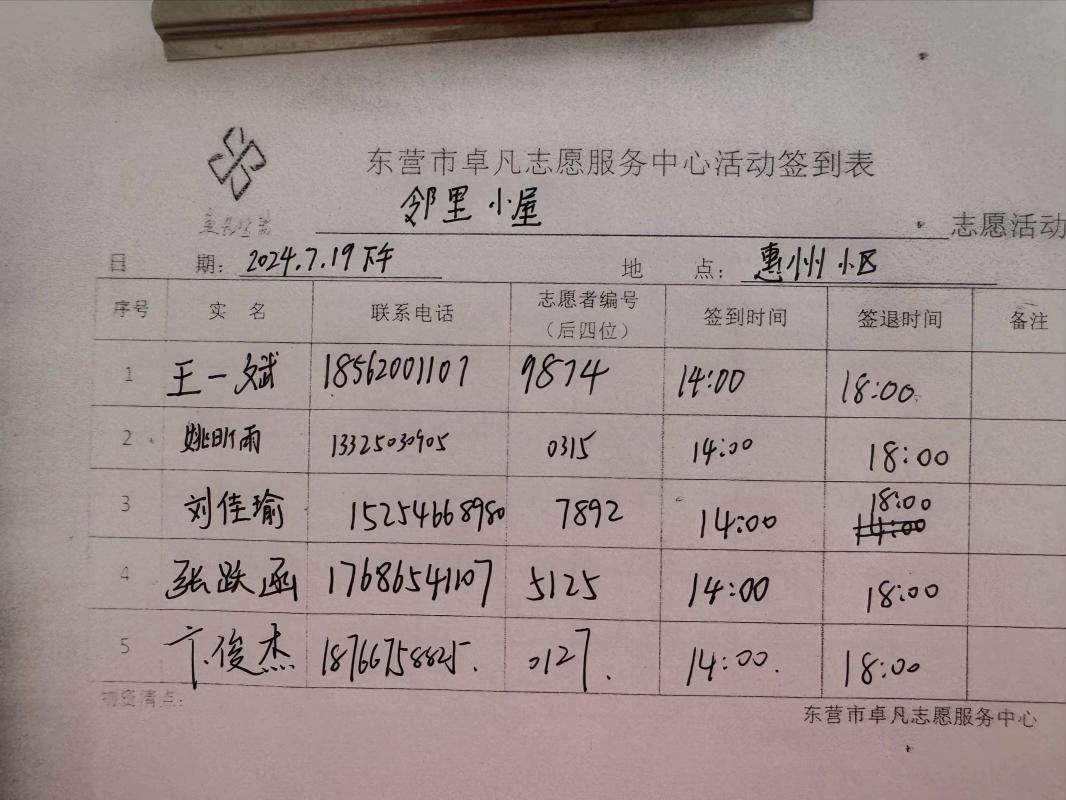 东营市卓凡志愿服务中心活动签到表
邻里小屋 志愿活动
日 期：2024.7.19下午 地 点：惠州小区
序号 实 名 联系电话 志愿者编号（后四位） 签到时间 签退时间 备注
1 王一斌 18562001107 9874 14:00 18:00
2 姚昕雨 13325030905 0315 14:00 18:00
3 刘佳瑜 15254668980 7892 14:00 18:00 14:00
4 张跃函 17686541107 5125 14:00 18:00
5 卞俊杰 18766758825. 0127. 14:00. 18:00
物资清点：
东营市卓凡志愿服务中心